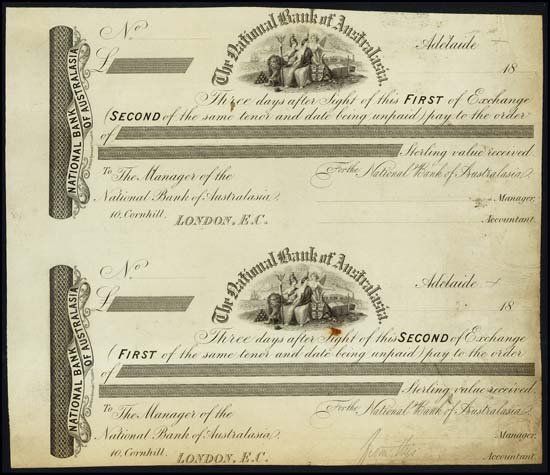 No
The National Bank of Australasia.
Adelaide
£
18
NATIONAL BANK OF AUSTRALASIA
Three days after Sight of this FIRST of Exchange
(SECOND of the same tenor and date being unpaid) pay to the order
of
Sterling value received.
To The Manager of the
For the National Bank of Australasia
National Bank of Australasia
Manager.
10, Cornhill,
LONDON, E.C.
Accountant.
No
The National Bank of Australasia.
Adelaide
£
18
NATIONAL BANK OF AUSTRALASIA
Three days after Sight of this SECOND of Exchange
(FIRST of the same tenor and date being unpaid) pay to the order
of
Sterling value received.
To The Manager of the
For the National Bank of Australasia
National Bank of Australasia
Manager.
10, Cornhill,
LONDON, E.C.
Accountant.